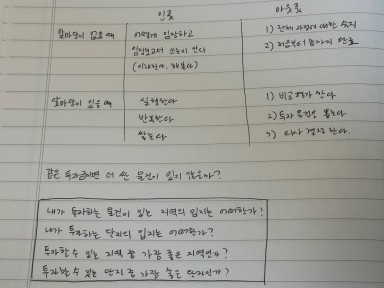 인풋 아웃풋
앞마당이 없을 때 어떻게 임장하고 1) 전체 과정에 대한 숙지
임장보고서 쓰는지 안다 2) 처음부터 끝까지 완료
(이해한다, 해본다)
앞마당이 있을 때 실행한다 1) 비교평가 한다
반복한다 2) 투자 물건을 뽑는다
쌓는다 3) 의사 결정 한다.
같은 투자금이면 더 싼 물건이 있지 않을까?
내가 투자하는 물건이 있는 지역의 입지는 어떠한가?
내가 투자하는 단지의 입지는 어떠한가?
투자할 수 있는 지역 중 가장 좋은 지역인가?
투자할 수 있는 단지 중 가장 좋은 단지인가?